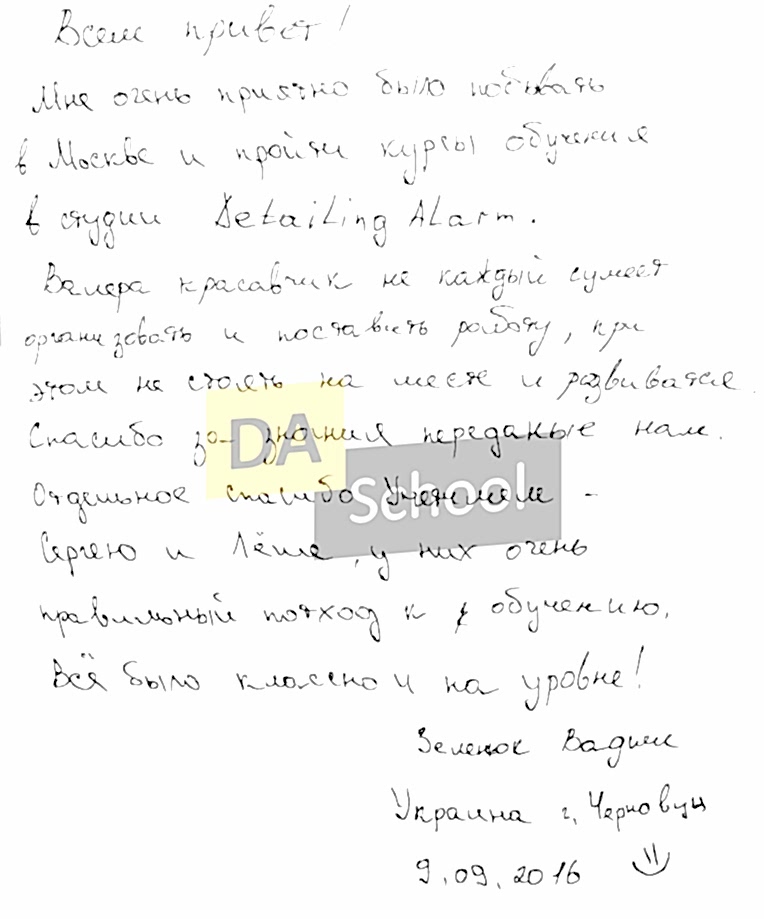 Всем привет!
Мне очень приятно было побывать
в Москве и пройти курсы обучения
в студии Detailing ALarm.
Валера красавчик не каждый сумеет
организовать и поставить работу, при
этом не стоять на месте и развиватся.
Спасибо за знания переданые нам.
Отдельное спасибо Учителям -
Сергею и Лёше, у них очень
правильный потход к обучению.
Всё было классно и на уровне!
Зеленюк Вадим
Украина г, Черновцы
9.09.2016
DA
School!